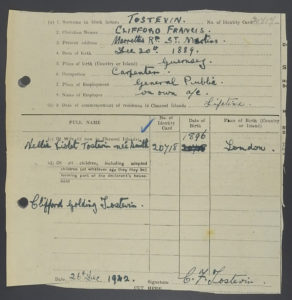 (a) 1. Surname in block letters TOSTEVIN. No. of Identity Card
2. Christian Names CLIFFORD FRANCIS.
3. Present Address Rd. ST. Martins
4. Date of Birth Dec 20th 1889.
5. Place of Birth (Country or Island) Guernsey
6. Occupation Carpenter
7. Name of Employer General Public
on own a/c.
Date of commencement of residence in Channel Islands Lifetime
FULL NAME No. of Identity Card Date of Birth Place of Birth (Country or Island)
Nellie Violet Tostevin née 20718 1896 London
(d) Of all children, including adopted
children (of whatever age they may be)
forming part of the declarant's house-
hold
Clifford Golding Tostevin.
Date 26th Dec 1942 Signature C. F. Tostevin
CUT HERE